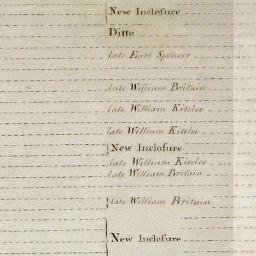 New Inclosure
Ditto
late Earl Spencer
late William Britain
late William Kitelee
late William Kitelee
New Inclosure
late William Kitelee
late William Britain
late William Britain
New Inclosure